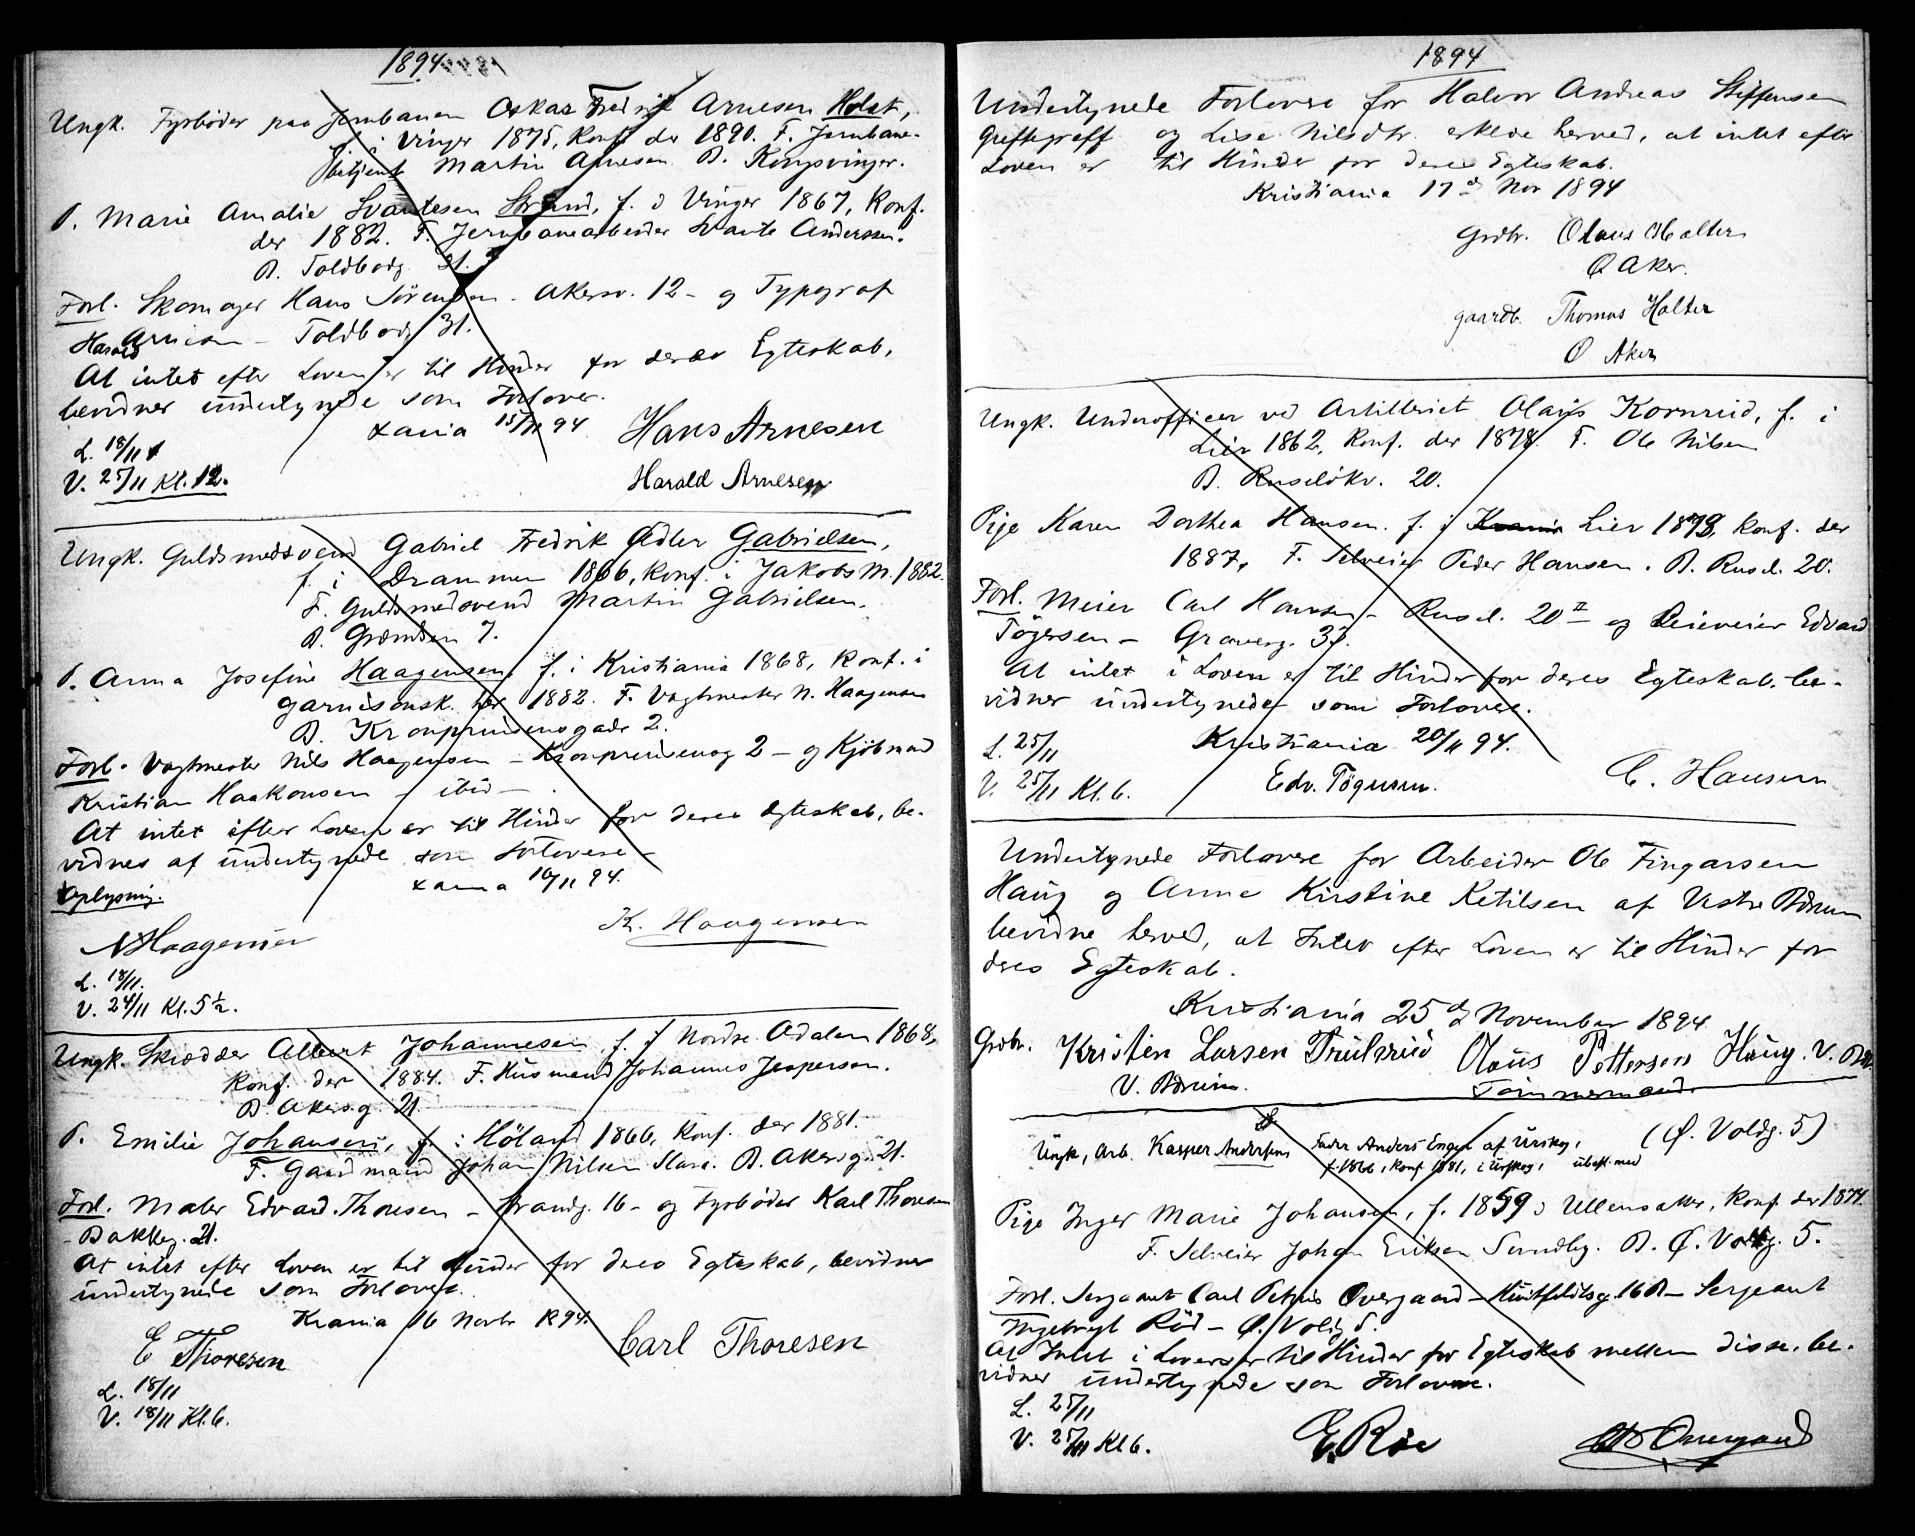 1894
Ungk. Fyrbøder paa Jernbanen Oskar Fredrik Arnesen Holst,
f. i Vinger 1875, Konf. der 1890. F. Jernbane-
betjent Martin Arnesen. B. Kongsvinger.
P. Marie Amalie Svantesen Strand, f. i Vinger 1867, Konf.
der 1882. F. Jernbanearbeider Svante Anderssen.
B. Toldbodg. 31.
Forl. Skomager Hans Sørensen - Akersv. 12 - og Typograf
Harald Arnesen - Toldbodg 31.
At intet efter Loven er til Hinder for deres Egteskab,
bevidner undertegnede som Forlover.
xania 15/11 94
Hans Arnesen
L. 18/11
Harald Arnesen
V. 25/11 Kl. 12.
Ungk. Guldsmedsvend Gabriel Fredrik Adler Gabrielsen,
f. i Drammen 1866, Konf. i Jakobs M. 1882.
F. Guldsmedsvend Martin Gabrielsen.
B. Grændsen 7.
P. Anna Josefine Haagensen, f. i Kristiania 1868, Konf. i
Garnisonsk. her 1882. F. Vagtmester N. Haagensen
B. Kronprindsensgade 2.
Forl. Vagtmester Nils Haagensen - Kronprindsensg 2 - og Kjöbmand
Kristian Haakonsen - ibid -
At intet efter Loven er til Hinder for deres Egteskab, be-
vidnes af undertegnede som Forlovere -
xania 16/11 94.
Oplysning.
K. Haagensen
N Haagensen
L. 18/11.
V. 24/11 Kl. 5½.
Ungk. Skrædder Albert Johannesen, f. i Nordre Odalen 1868,
Konf. der 1884. F. Husmand Johannes Jespersen.
B. Akersg. 21.
P. Emilie Johansen, f. i Høland 1866, Konf. der 1881.
F. Gaardmand Johan Nilsen B. Akersg. 21.
Forl. Maler Edvard Thoresen - Strandg. 16 - og Fyrbøder Karl Thoresen
- Bakkeg. 21.
At intet efter Loven er til Hinder for deres Egteskab, bevidner
undertegnede som Forlover.
Krania 16 Novbr 1894.
E Thoresen
Carl Thoresen
L. 18/11
V. 18/11 Kl. 6.
1894
Undertegnede Forlovere for Halvor Andreas Steffensen
og Lise Nilsdtr. erklære herved, at intet efter
Loven er til Hinder for deres Egteskab.
Kristiania 17d Nov 1894
Grdbr. Olaus Halter
Ø Aker.
gaardb. Thomas Halter
Ø Aker
Ungk. Underofficer ved Artilleriet Olaus Kornrud, f. i
Lier 1862, Konf. der 1878. F. Ole Nilsen
B. Ruseløkv. 20.
Pige Karen Dorthea Hansen. f. i Lier 1873, Konf. der
1887, F. Selveier Peder Hansen. B. Rusel. 20.
Forl. Meier Carl Hansen - Rusel. 20 II - og Edvard
Tøgersen - Graverg. 37.
At intet i Loven er til Hinder for deres Egteskab, be-
vidner undertegnede som Forlover.
L. 25/11
Kristiania 20/11 94.
V. 25/11 Kl. 6.
Edv. Tøgersen.
C. Hansen
Undertegnede Forlovere for Arbeider Ole Fingarsen
Haug og Anne Kirstine Ketilsen af Vestre Bærum
bevidne herved, at Intet efter Loven er til Hinder for
deres Egteskab.
Kristiania 25d November 1894
Grdbr. Kristen Larsen Olaus Pettersen Haug. V. Bær.
V. Bærum. Tömmermand
Ungk, Arb. Kasper Andersen Fader Anders Engen af Urskog, (Ø. Voldg. 5)
f. 1866, Konf 1881, i Urskog, ubesl. med
Pige Inger Marie Johansen, f. 1859 i Ullensaker, Konf der 1874.
F. Selveier Johan Eriksen Sundby. B. Ø. Voldg. 5.
Forl. Sergeant Carl Petrus Overgaard - Huitfeldtsg. 16 B - Sergeant
Ingebrigt Röd - Ø. Voldg 5.
At Intet i Loven er til Hinder for Egteskab mellem disse, be-
vidner undertegnede som Forlovere.
L. 25/11
V. 25/11 Kl 6.
E. Röe
Overgaard